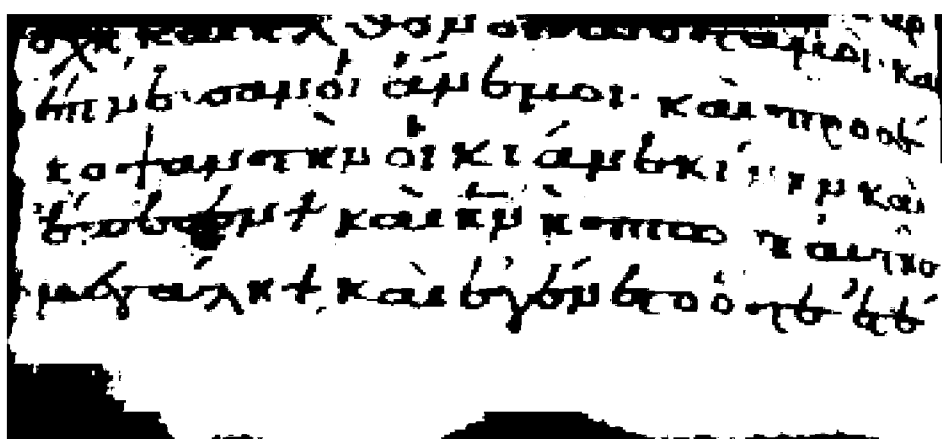 οχὴ καὶ ἦλθον οἱ ποταμοὶ· καὶ
ἔπνευσαν οἱ ἄνεμοι· καὶ προσέ
κοψαν τῆ οἰκία ἐκείνη καὶ
ἔπεσεν + καὶ ἦν ἡ πτῶσις αὐτῆς
μεγάλη + καὶ ἐγένετο ὅτε ἐτέ